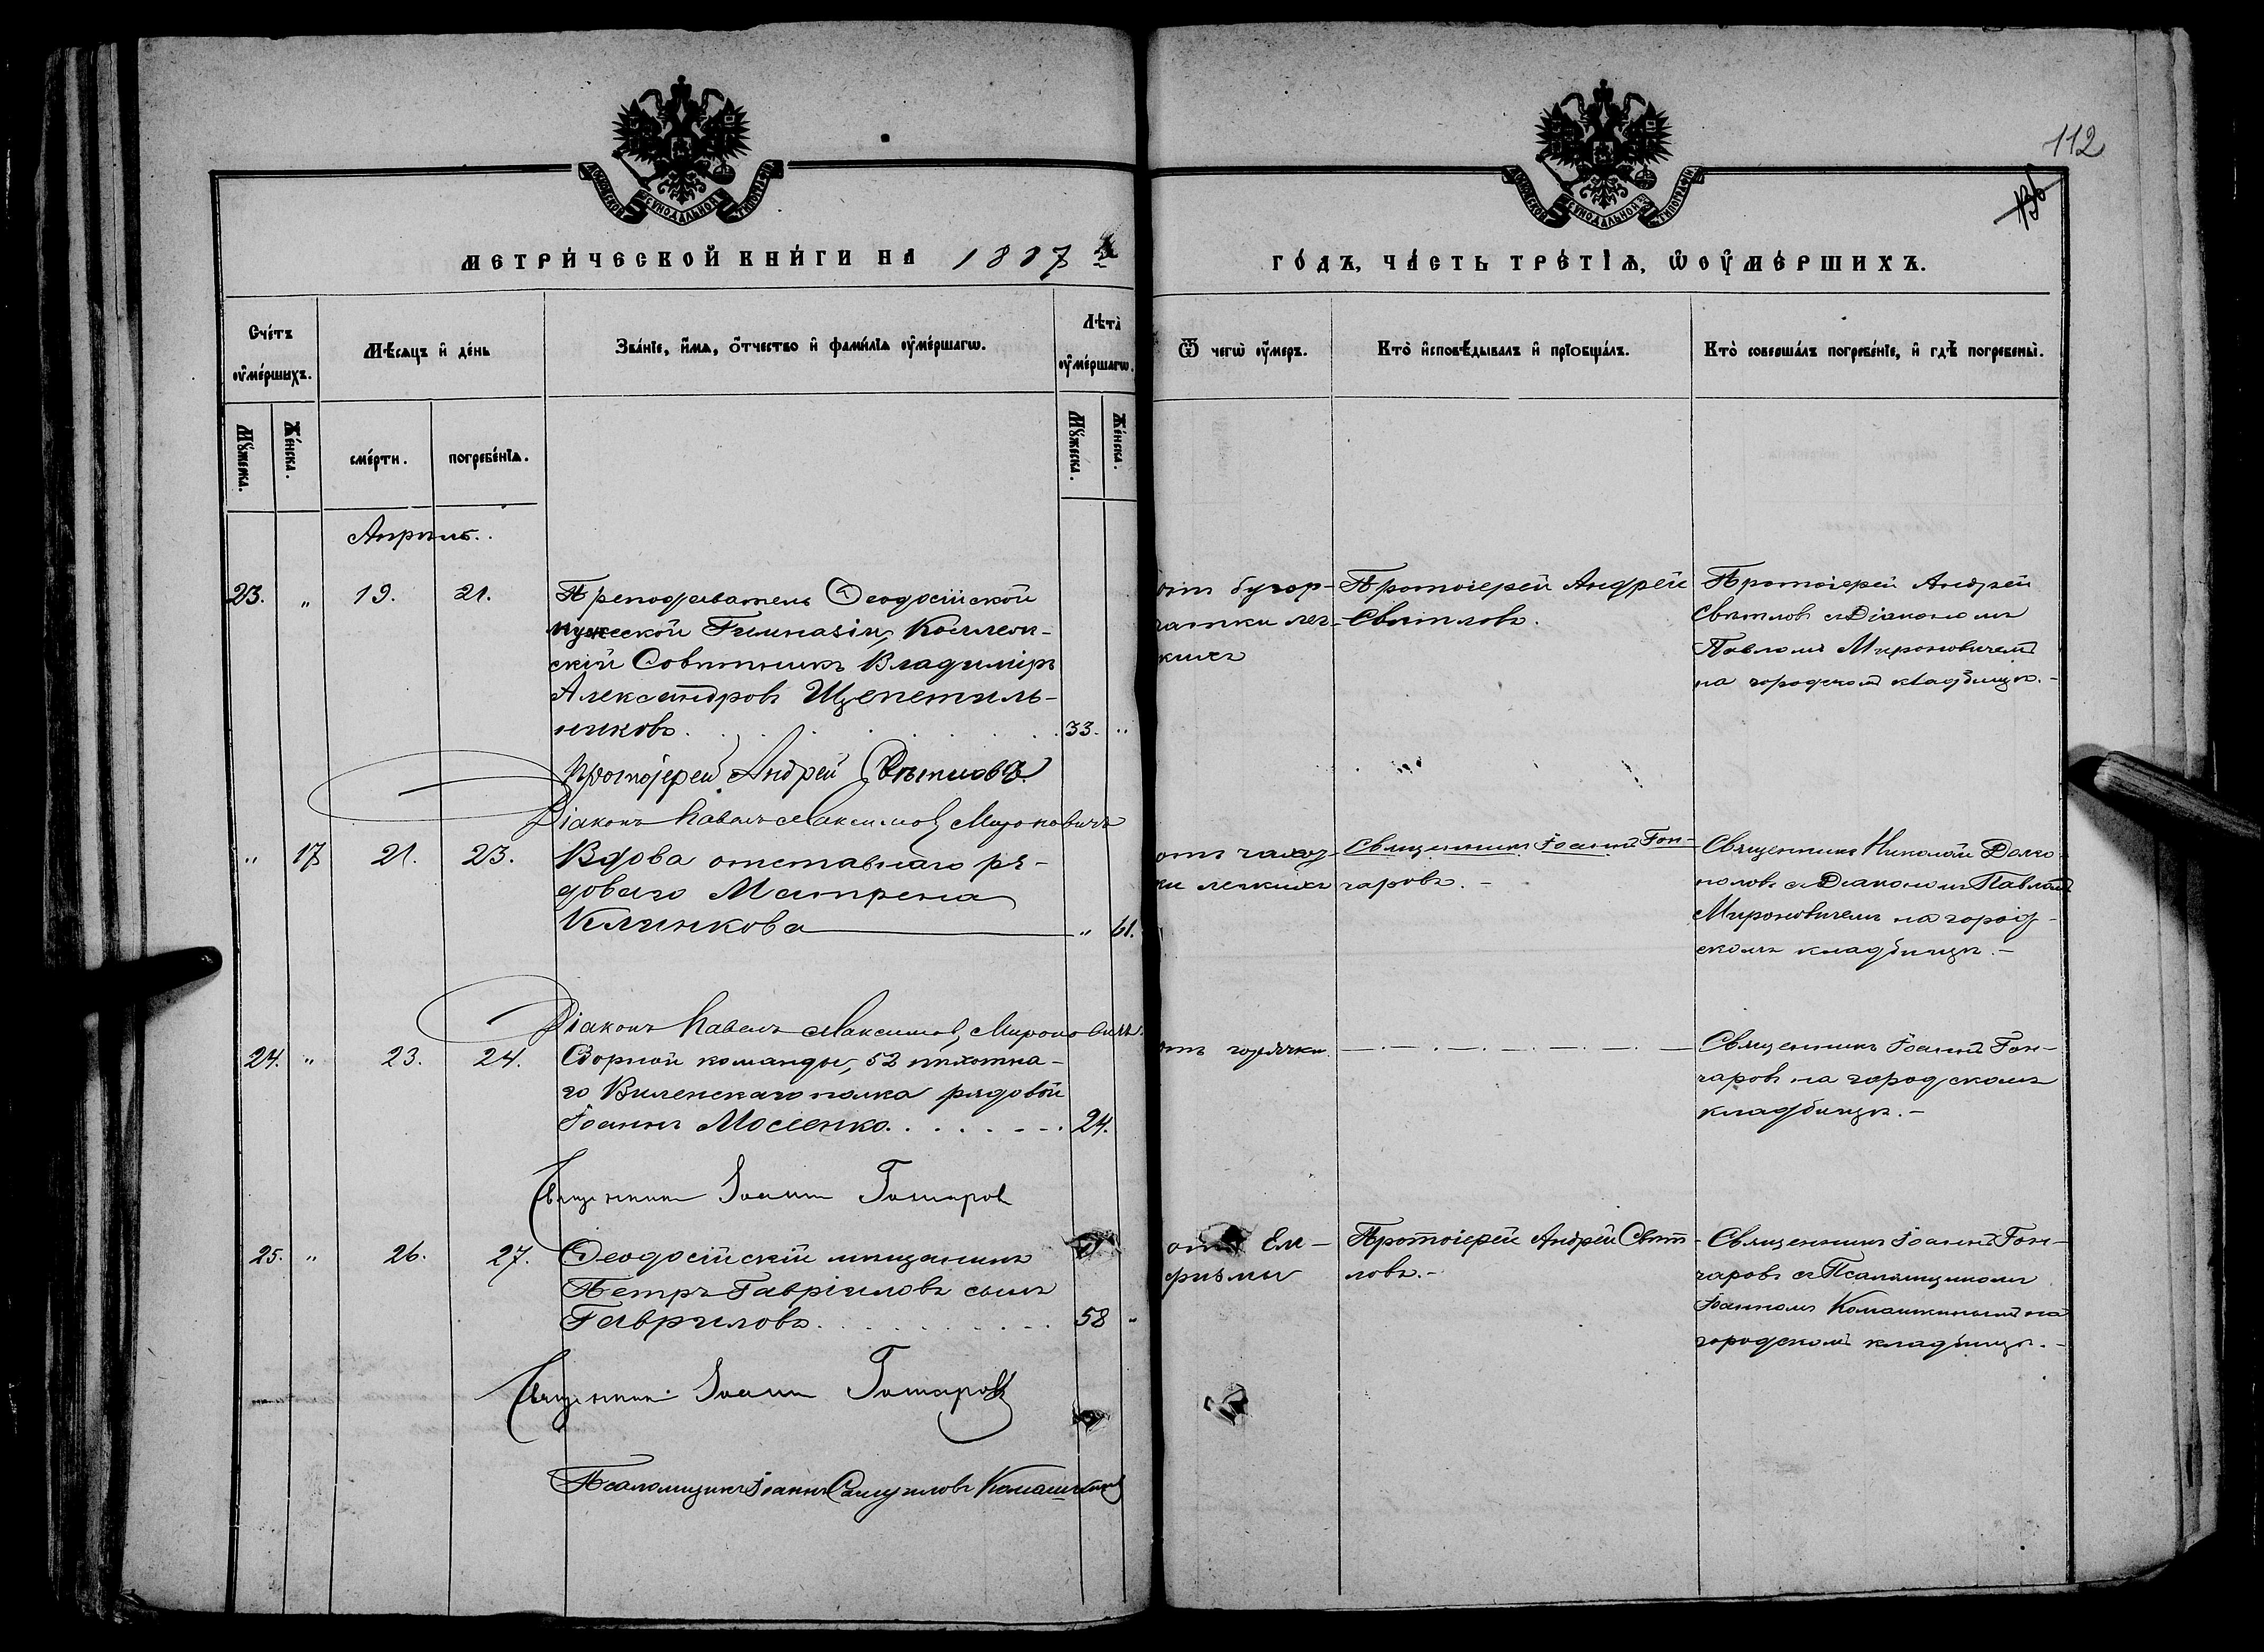 112
136
МОСКОВСКОЙ СѴНОДАЛЬНОЙ ТИПОГРАФІИ
МОСКОВСКОЙ СѴНОДАЛЬНОЙ ТИПОГРАФІИ
МЕТРИ́ЧЕСКОЙ КНИ́ГИ НА 1887 й
ГО́ДЪ, ЧА́СТЬ ТРЕ́ТІѦ, Ѡ ОУ҆МЕ́РШИХЪ.
Сче́тъ оу҆ме́ршихъ.
Мѣ́сяцъ и҆ де́нь
Зва́нїе, и҆́мѧ, о҆́тчество и҆ фами́лїѧ оу҆ме́ршагѡ.
Лѣ́та оу҆ме́ршагѡ.
Ѿ чегѡ̀ оу҆́меръ.
Кто̀ и҆сповѣ́дывалъ и҆ прїобща́лъ.
Кто̀ соверша́лъ погребе́нїе, и҆ гдѣ̀ погребены̀.
Мꙋ́жеска.
Же́нска.
сме́рти.
погребе́нїѧ.
Мꙋ́жеска.
Же́нска.
Апрѣль.
23. " 19. 21.
Преподаватель Ѳеодосійской
мужеской Гимназіи, Коллеж-
скій Совѣтникъ Владиміръ
Александровъ Щепетиль-
никовъ. 33. "
отъ бугор-
чатки лег-
кихъ
Протоіерей Андрей
Свѣтловъ.
Протоіерей Андрей
Свѣтловъ съ Діакономъ
Павломъ Мироновичемъ
на городскомъ кладбищѣ.-
Протоіерей Андрей Свѣтловъ
Діаконъ Павелъ Максимовъ Мироновичъ
" 17 21. 23.
Вдова отставнаго ря-
доваго Матрена
Клинкова " 61.
отъ чахот-
ки легкихъ
Священникъ Іоаннъ Гон-
чаровъ.-
Священникъ Николай Долго-
половъ съ Діакономъ Павломъ
Мироновичемъ на город-
скомъ кладбищѣ.-
Діаконъ Павелъ Максимовъ Мироновичъ.
24. " 23. 24.
Сборной команды, 52 пѣхотна-
го Виленскаго полка рядовой
Іоаннъ Мосенко. 24.
отъ горячки.
Священникъ Іоаннъ Гон-
чаровъ на городскомъ
кладбищѣ.-
Священникъ Іоаннъ Гончаровъ
25. " 26. 27.
Ѳеодосійскій мѣщанинъ
Петръ Гавріиловъ сынъ
Гавриловъ. 58 "
отъ Эм-
физмы
Протоіерей Андрей Свѣт-
ловъ.-
Священникъ Іоаннъ Гон-
чаровъ съ Псаломщикомъ
Іоанномъ Комашкинымъ на
городскомъ кладбищѣ.-
Священникъ Іоаннъ Гончаровъ
Псаломщикъ Іоаннъ Самуиловъ Комашкинъ